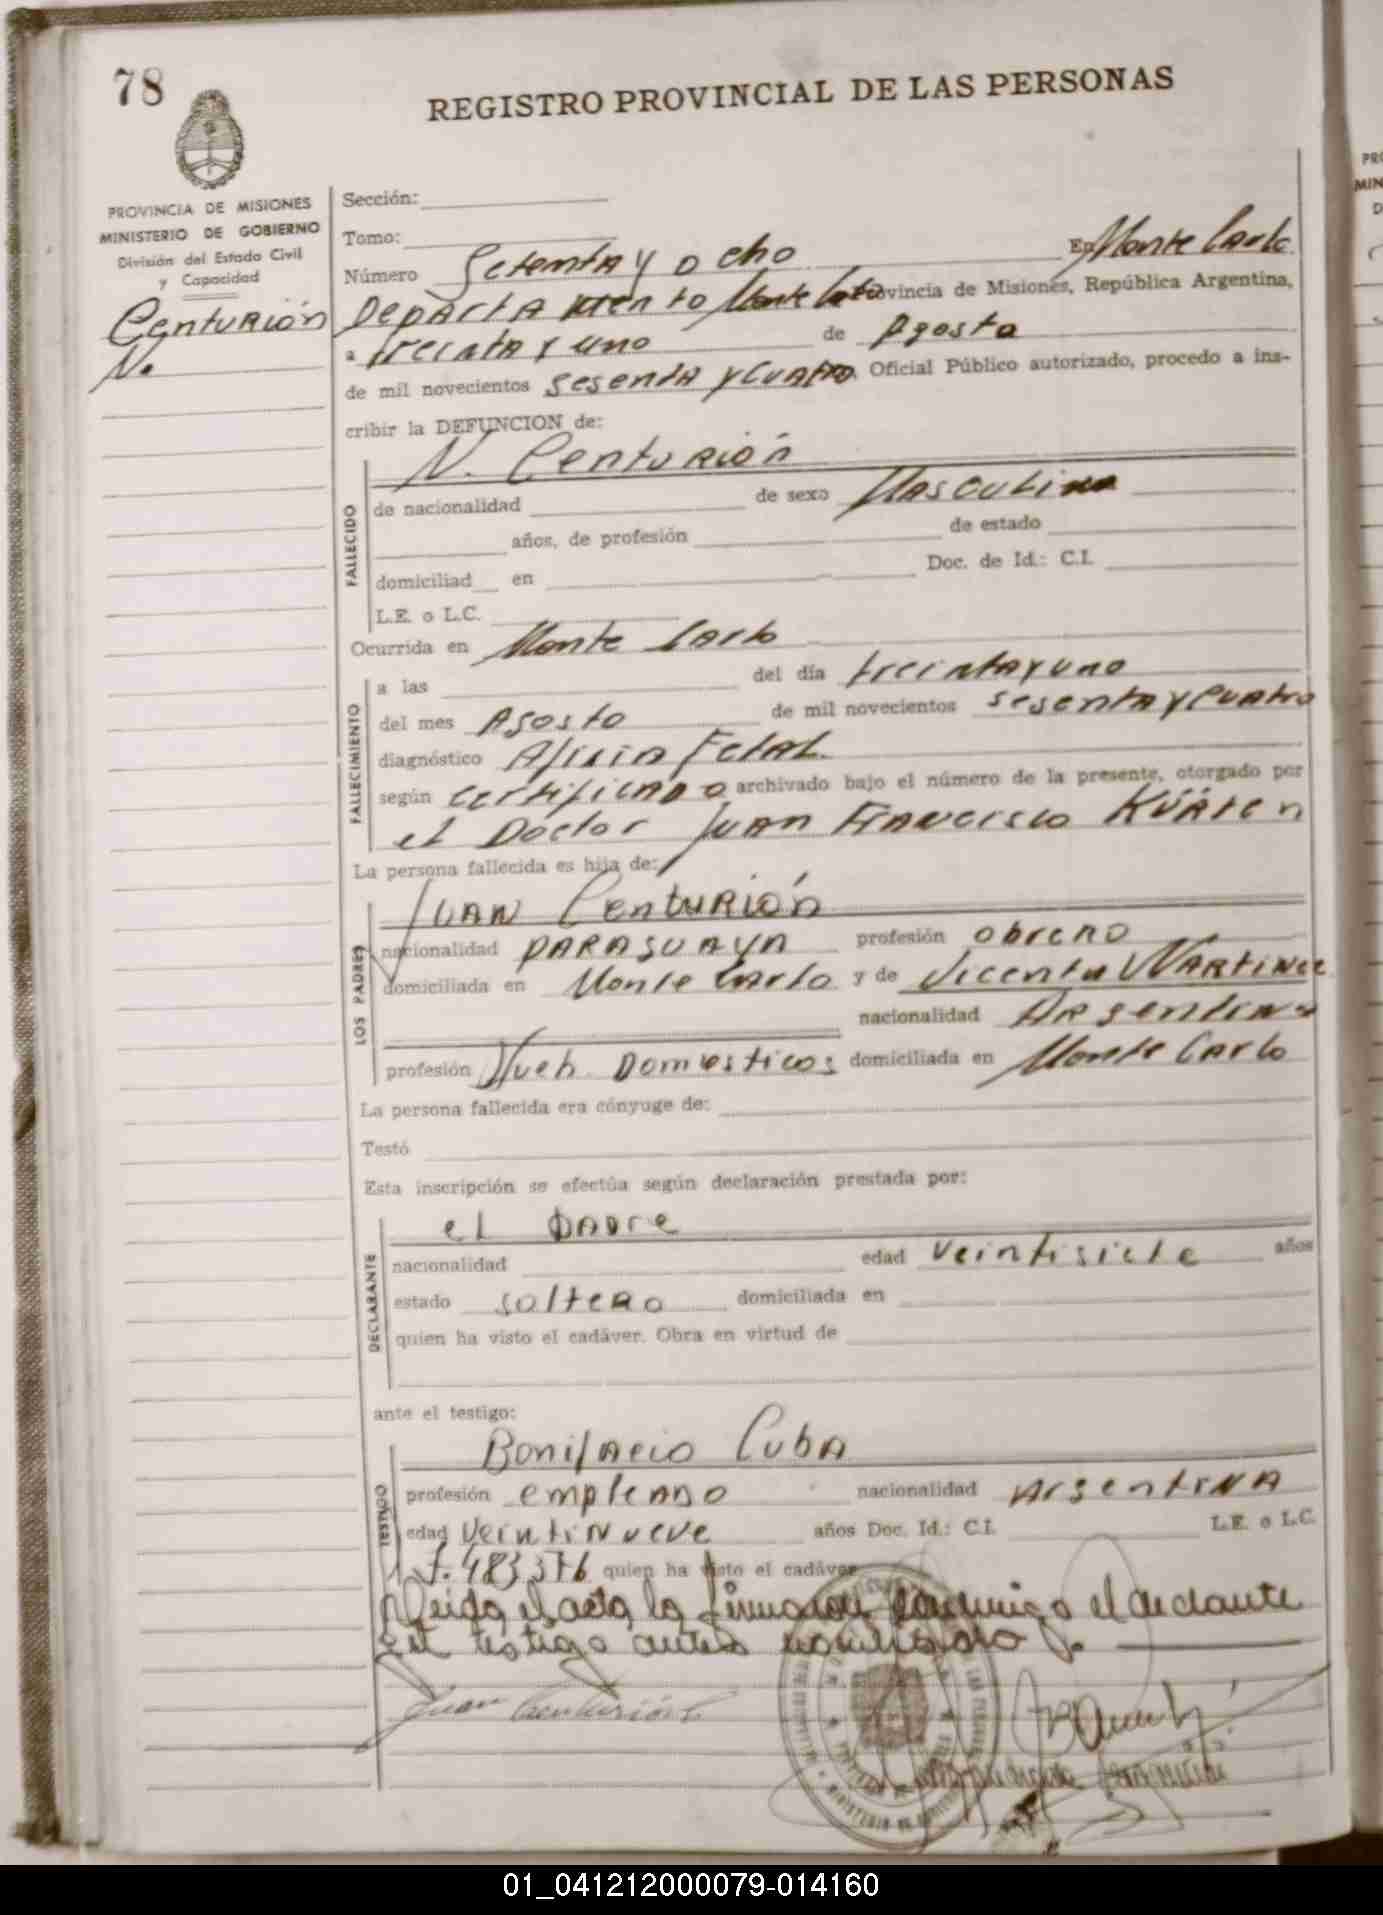 78
REGISTRO PROVINCIAL DE LAS PERSONAS
PROVINCIA DE MISIONES
MINISTERIO DE GOBIERNO
División del Estado Civil
y Capacidad
Centurión
N.
Sección:
Tomo:
Número Setenta y ocho En Monte Carlo
Departamento Monte Carlo Provincia de Misiones, República Argentina,
a treinta y uno de Agosto
de mil novecientos sesenta y cuatro Oficial Público autorizado, procedo a ins-
cribir la DEFUNCION de:
N. Centurión
FALLECIDO
de nacionalidad de sexo Masculino
años, de profesión de estado
domiciliad en Doc. de Id.: C.I.
L.E. o L.C.
Ocurrida en Monte Carlo
FALLECIMIENTO
a las del día treinta y uno
del mes Agosto de mil novecientos sesenta y cuatro
diagnóstico Afixia Fetal
según certificado archivado bajo el número de la presente, otorgado por
el Doctor Juan Francisco Kürten
La persona fallecida es hija de:
LOS PADRES
Juan Centurión
nacionalidad paraguaya profesión obrero
domiciliada en Monte Carlo y de Vicenta Martinez
nacionalidad Argentina
profesión Queh. Domesticos domiciliada en Monte Carlo
La persona fallecida era cónyuge de:
Testó
Esta inscripción se efectúa según declaración prestada por:
DECLARANTE
el padre
nacionalidad edad veintisiete años
estado soltero domiciliada en
quien ha visto el cadáver. Obra en virtud de
ante el testigo:
TESTIGO
Bonifacio Cuba
profesión empleado nacionalidad Argentina
edad veintinueve años Doc. Id.: C.I. L.E. o L.C.
7.483.376 quien ha visto el cadáver
Leida el acta la firmaron conmigo el declarante
y el testigo antes nombrado
Juan Centurión
01_041212000079-014160